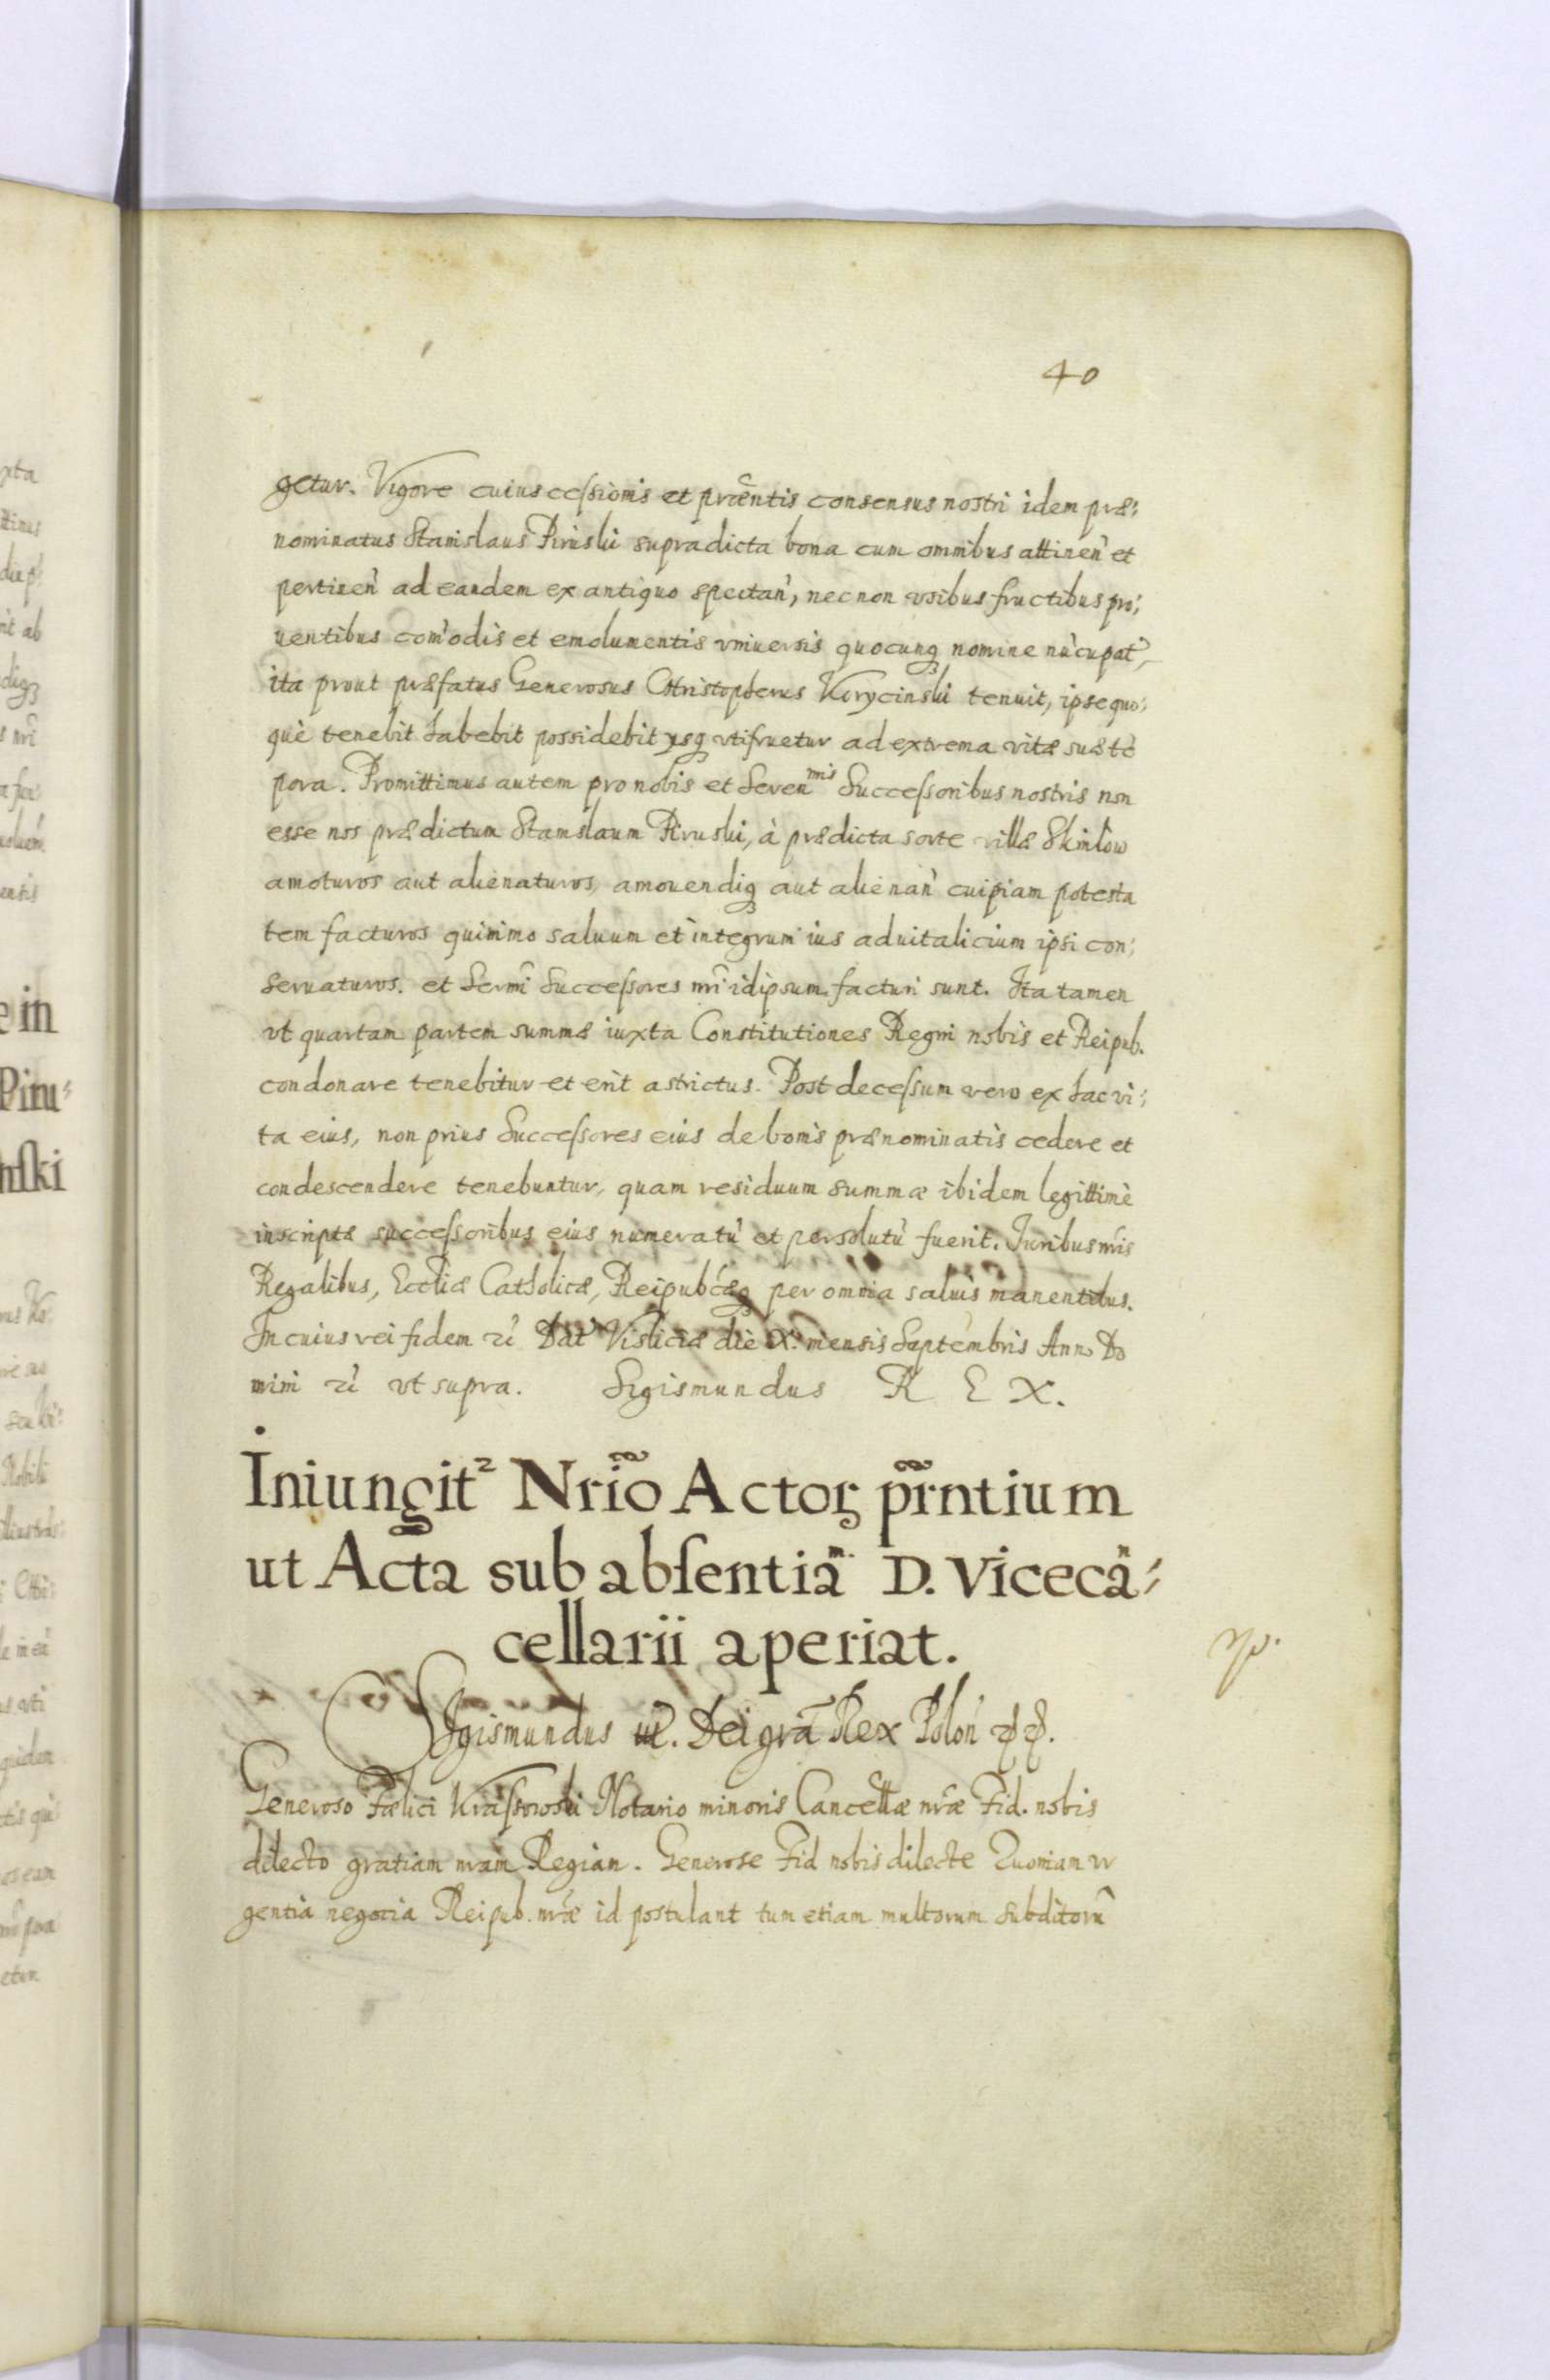 40
getur. Vigore cuius cessionis et præntis consensus nostri idem præ:
nominatus Stanislaus Piruski supradicta bona cum omnibus attinen̄ et
pertinen̄ ad eandem ex antiquo spectan̄, nec non vsibus fructibus pro:
uentibus com̄odis et emolumentis vniuersis quocunq nomine nūcupat̄,
ita prout præfatus Generosus Christopherus Korycinski tenuit, ipse quo:
què tenebit habebit possidebit vtifruetur ad extrema vitæ suæ tē
pora. Promittimus autem pro nobis et Seren mis Successoribus nostris non
esse nos prædictum Stanislaum Piruski, à prædicta sorte villæ
amoturos aut alienaturos, amouendiq aut alienan̄ cuipiam potesta
tem facturos quinimo saluum et integrum ius aduitalicium ipsi con:
seruaturos. et Serm̄i Successores nr̄i idipsum facturi sunt. Ita tamen
vt quartam partem summæ iuxta Constitutiones Regni nobis et Reipub.
condonare tenebitur et erit astrictus. Post decessum vero ex hac vi:
ta eius, non prius Successores eius de bonis prænominatis cedere et
condescendere tenebuntur, quam residuum summæ ibidem legittimè
inscriptæ successoribus eius numeratū et persolutū fuerit. Iuribus nr̄is
Regalibus, Eccl̄iæ Catholicæ, Reipub̄cæq per omnia saluis manentibus.
In cuius rei fidem Dat̄ Visliciæ die X. mensis Septembris Anno Do
mini vt supra. Sigismundus R E X.
Iniungit² Nrīo Actoꝝ pr̄ntium
ut Acta sub absentiā D. Vicecā:
cellarii aperiat.
Sigismundus III. Dei grā Rex Polon̄
Generoso Fælici Krassowski Notario minoris Cancellæ nr̄æ Fid. nobis
dilecto gratiam nram̄ Regiam. Generose Fid nobis dilecte Quoniam vr
gentia negotia Reipub. nr̄æ id postulant tum etiam multorum subditorū